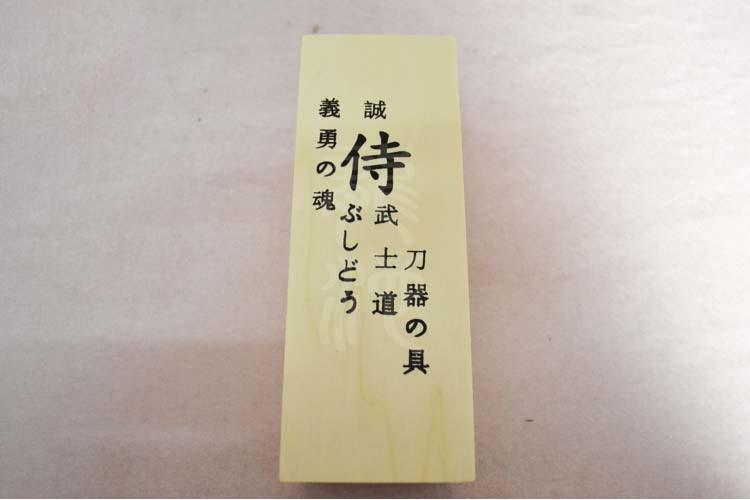 刀器の具
誠
侍
武士道
ぶしどう
義勇の魂